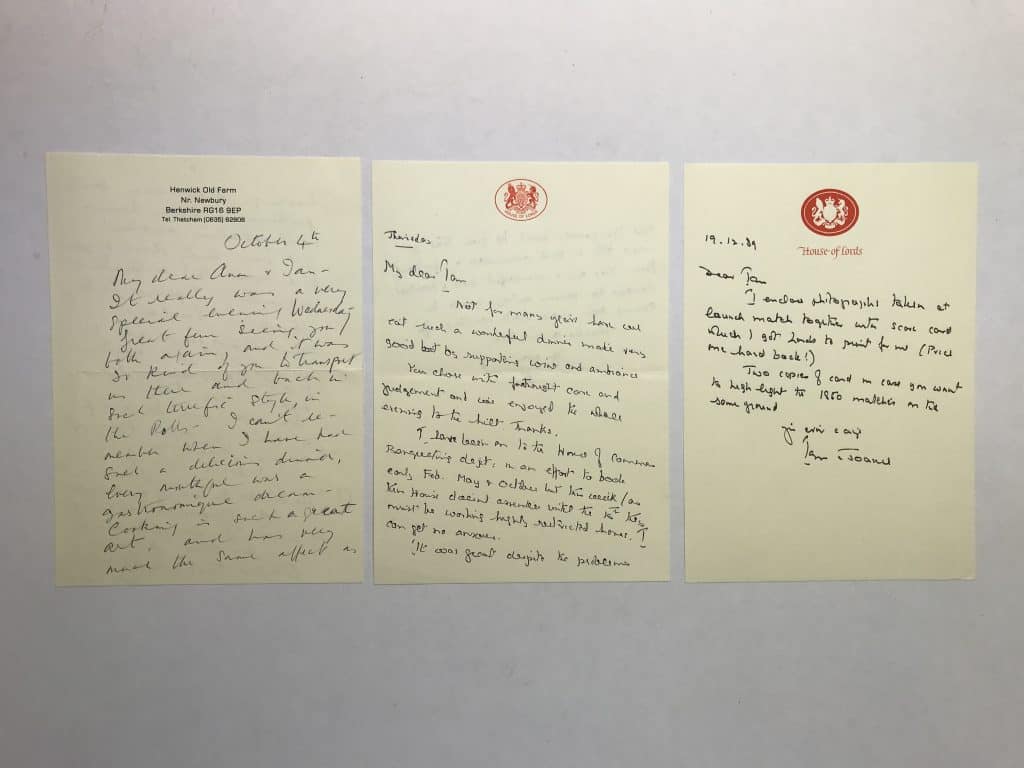 Henwick Old Farm
Nr. Newbury
Berkshire RG16 9EP
Tel. Thatcham (0635)
October 4th
My dear Ann & Ian -
It really was a very
special evening Wednesday
great fun seeing you
both again, and it was
so kind of you to transport
us there and back in
such terrific style, in
the Rolls - I can't re-
member when I have had
such a delicious dinner,
every mouthful was a
gastronomique dream -
Cooking is such a great
art, and has very
much the same affect as
HOUSE OF LORDS
Thursday
My dear Ian
Not for many years have we
eat such a wonderful dinner made very
good but by supporting wine and ambiance
You chose with care and
judgement and we enjoyed the whole
evening to the hilt Thanks.
I have been on to the House of Commons
Banqueting dept: in an effort to book
early Feb. May & October but this week
House doesn't until the
must be working highly restricted hours. I
can get no answer.
It was great despite the problems
House of Lords
19.12.89
Dear Ian
I enclose photographs taken at
launch match together with score card
which I got Lords to print for me (Price
me hard back!)
Two copies of card in case you want
to high light to 1950 matches on the
same ground